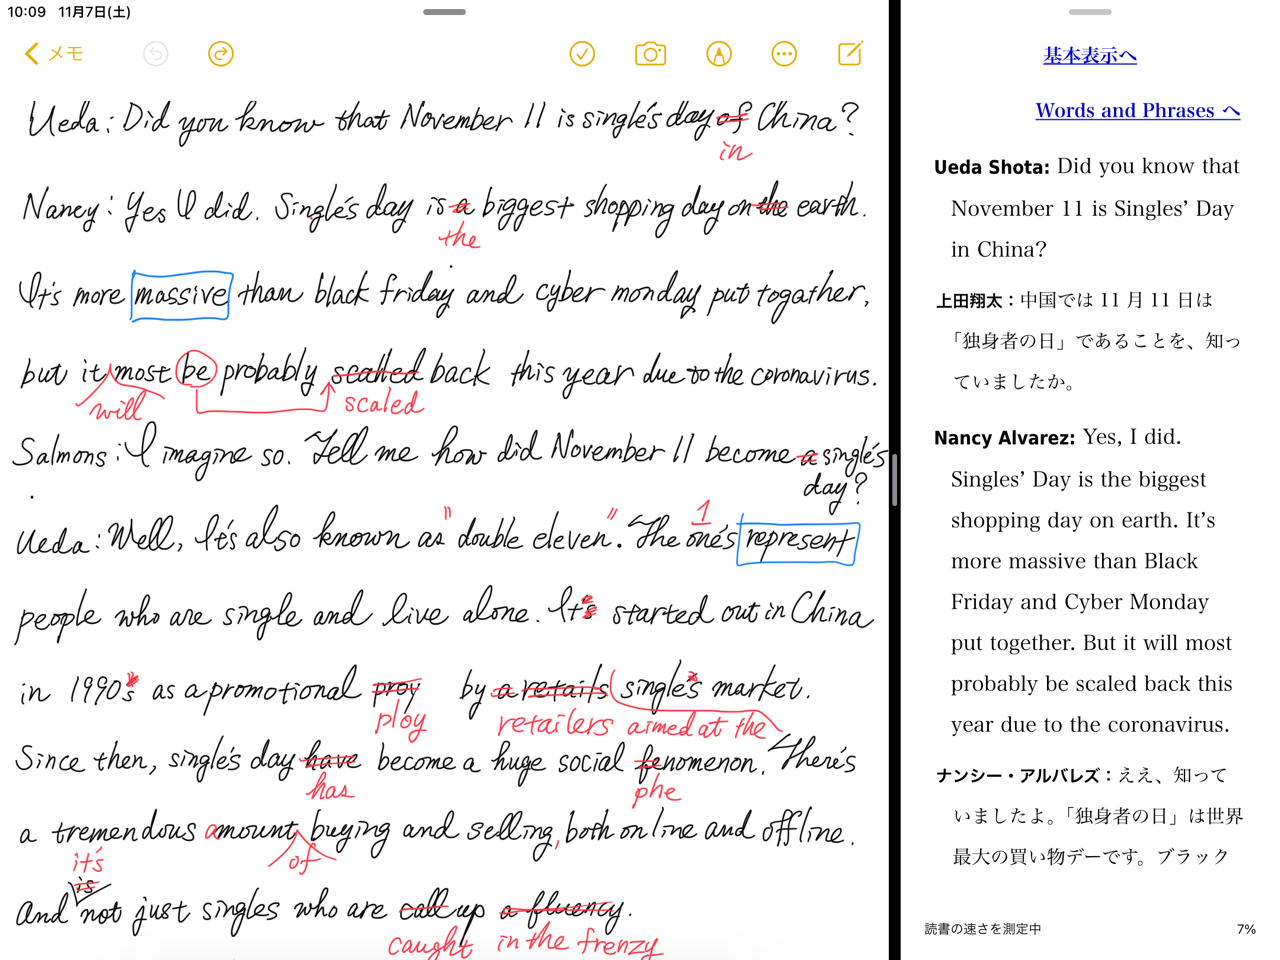 10:09 11月7日(土)
メモ
Ueda: Did you know that November 11 is single's day of China?
in
Nancy: Yes I did. Single's day is a biggest shopping day on the earth.
the
It's more massive than black friday and cyber monday put togather,
but it most be probably scalled back this year due to the coronavirus.
will
scaled
Salmons: I imagine so. Tell me how did November 11 become a single's
day?
1
Ueda: Well, It's also known as "double eleven". The one's represent
people who are single and live alone. It's started out in China
in 1990's as a promotional proy by a retails single's market.
ploy retailers aimed at the
Since then, single's day have become a huge social fenomenon. There's
has phe
a tremendous amount buying and selling, both online and offline.
it's of
is
And not just singles who are call up a fluency.
caught in the frenzy
基本表示へ
Words and Phrases へ
Ueda Shota: Did you know that
November 11 is Singles' Day
in China?
上田翔太：中国では 11 月 11 日は
「独身者の日」であることを、知っ
ていましたか。
Nancy Alvarez: Yes, I did.
Singles' Day is the biggest
shopping day on earth. It's
more massive than Black
Friday and Cyber Monday
put together. But it will most
probably be scaled back this
year due to the coronavirus.
ナンシー・アルバレズ：ええ、知って
いましたよ。「独身者の日」は世界
最大の買い物デーです。ブラック
読書の速さを測定中 7%